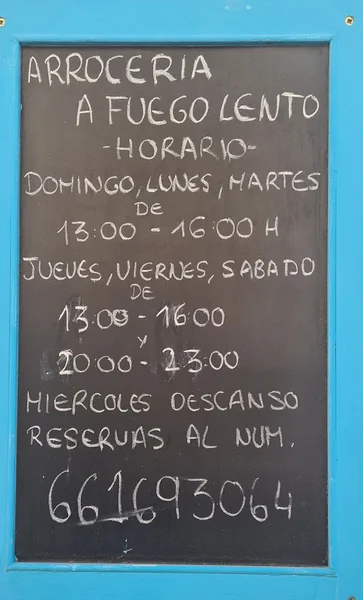 ARROCERIA
A FUEGO LENTO
-HORARIO-
DOMINGO, LUNES, MARTES
DE
13:00 - 16:00 H
JUEVES, VIERNES, SABADO
DE
13:00 - 16:00
Y
20:00 - 23:00
MIERCOLES DESCANSO
RESERVAS AL NUM.
661693064